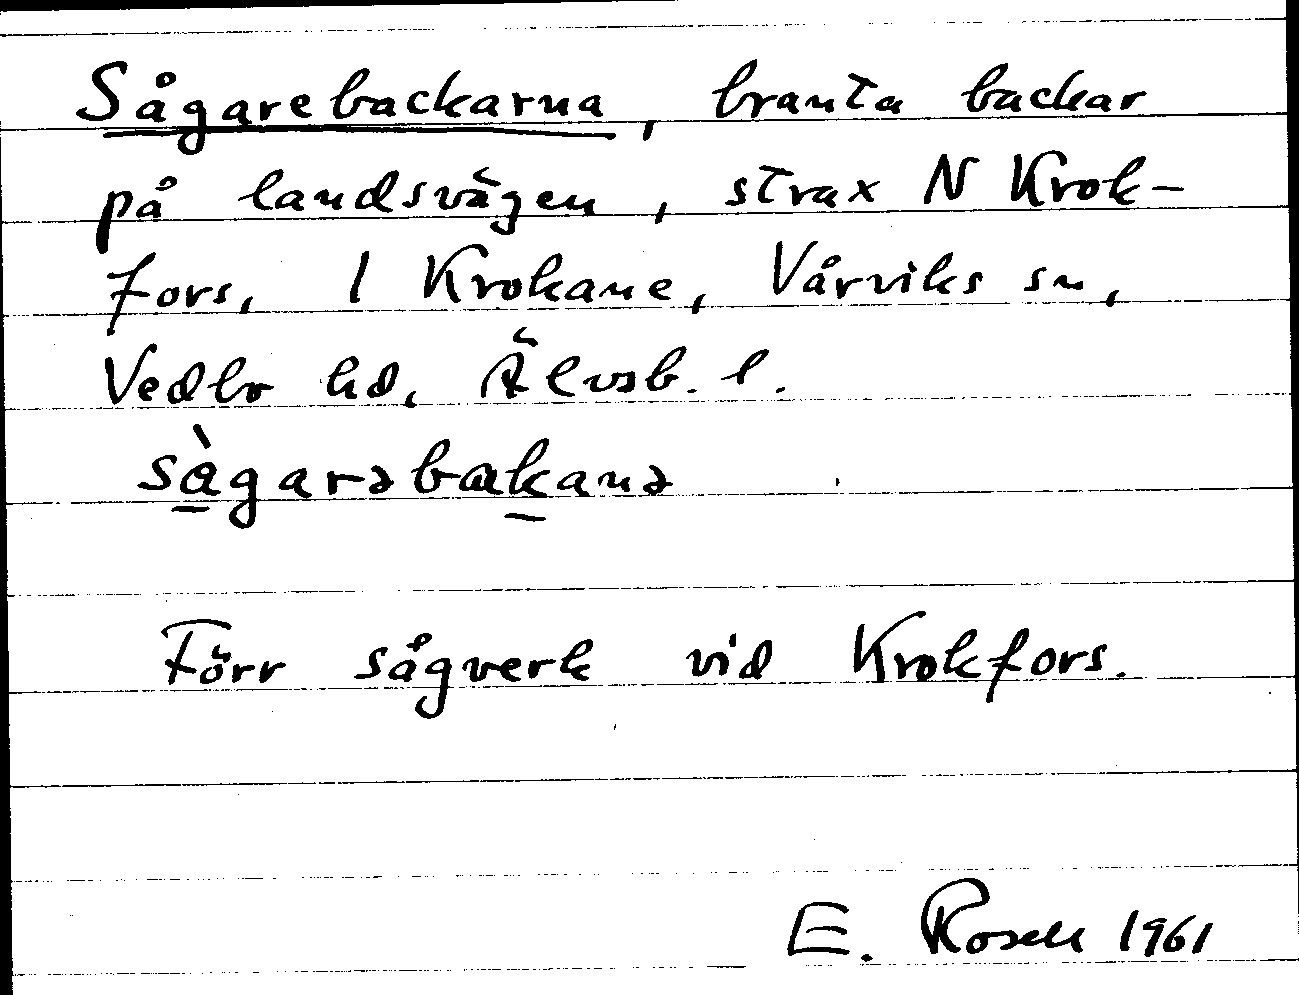 Sågarebackarna, branta backar
på landsvägen, strax N Krok-
fors, 1 Krokane, Vårviks sn,
Vedbo hd, Älvsb. l.
sàgarəbakanə
Förr sågverk vid Krokfors.
E. Rosell 1961